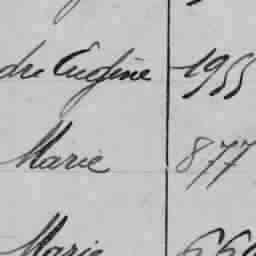 dre Eugène 1955
Marie 877
Marie 669